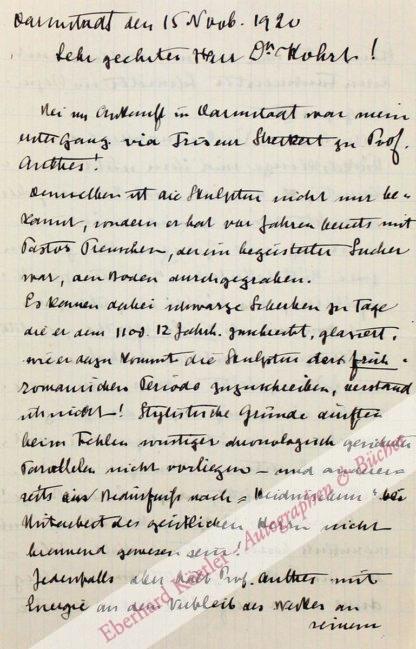 Darmstadt den 15 Novb. 1920
Sehr geehrter Herr Dr. Kohrt!
Bei m. Ankunft in Darmstadt war mein
erster Gang via Friseur zu Prof.
Anthes!
Demselben ist die Skulptur nicht nur be-
kannt, sondern er hat vor Jahren bereits mit
Pastor, der ein begeisterter Sucher
war, den Boden durchgegraben.
Es kamen dabei schwarze Scherben zu Tage
die er dem 11 od. 12 Jahrh. zuschreibt, glasiert,
wie er dazu kommt die Skulptur der früh-
romanischen Periode zuzuschreiben, verstand
ich nicht! Stylistische Gründe dürften
beim Fehlen sonstiger chronologisch gesicherter
Parallelen nicht vorliegen – und anderer-
seits das Bedürfniss nach "Heidnischem" bei
Mitarbeit des geistlichen Herrn nicht
brennend gewesen sein!
Jedenfalls aber hält Prof. Anthes mit
Energie an dem Verbleib des Werkes an
seinem
Eberhard Köstler - Autographen & Bücher